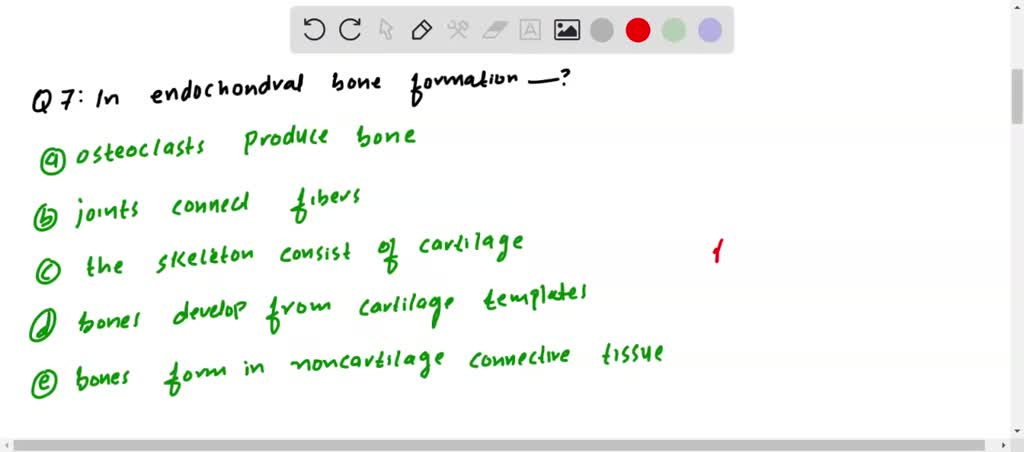 Q 7: In endochondral bone formation —?
ⓐ osteoclasts produce bone
ⓑ joints connect fibers
ⓒ the skeleton consist of cartilage
ⓓ bones develop from cartilage templates
ⓔ bones form in noncartilage connective tissue